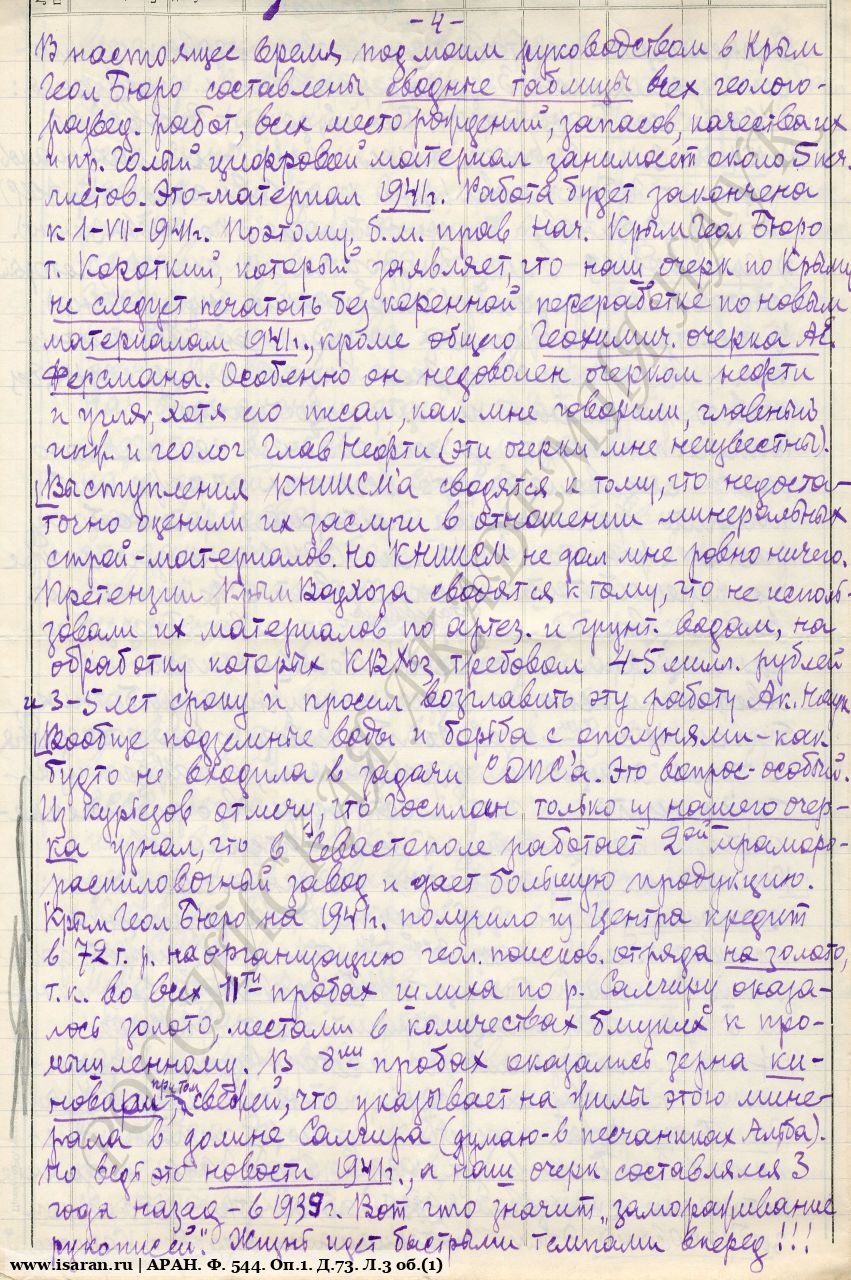 -4-
В настоящее время под моим руководством в Крым
Геол Бюро составлены сводные таблицы всех геолого-
развед. работ, всех месторождений, запасов, качества их
и пр. Голый цифровой материал занимает около 5 печ.
листов. Это-материал 1941г. Работа будет закончена
к 1-VII-1941г. Поэтому, б.м. прав нач. КрымГеолБюро
т. Короткий, который заявляет, что наш очерк по Крыму
не следует печатать без коренной переработке по новым
материалам 1941г., кроме общего Геохимич. очерка АЕ.
Ферсмана. Особенно он недоволен очерком нефти
и угля, хотя его писал, как мне говорили, главный
инж. и геолог Глав Нефти (эти очерки мне неизвестны).
Выступления КНИИСМ'а сводятся к тому, что недоста-
точно оценили их заслуги в отношении минеральных
строй-материалов. Но КНИИСМ не дал мне ровно ничего.
Претензии КрымВодхоза сводятся к тому, что не исполь-
зовали их материалов по артез. и грунт. водам, на
обработку которых КВХоз требовал 4-5 милл. рублей
и 3-5 лет сроку и просил возглавить эту работу Ак. Наук
Вообще подземные воды и борьба с оползнями-как
будто не входила в задачи СОПС'а. Это вопрос-особый.
Из курьезов отмечу, что Госплан только из нашего очер-
ка узнал, что в Севастополе работает 2ой мраморо-
распиловочный завод и дает большую продукцию.
КрымГеолБюро на 1941г. получило из Центра кредит
в 72 т. р. на организацию геол. поисков. отряда на золото,
т.к. во всех 11ти пробах шлиха по р. Салгиру оказа-
лось золото, местами в количествах близких к про-
мышленному. В 8ми пробах оказались зерна ки-
новари, притом свежей, что указывает на жилы этого мине-
рала в долине Салгира (думаю-в песчаниках Альба).
Но ведь это новости 1941г., а наш очерк составлялся 3
года назад-в 1939г. Вот что значит „замораживание
рукописей". Жизнь идет быстрыми темпами вперед!!!
РОССИЙСКАЯ АКАДЕМИЯ НАУК
www.isaran.ru | АРАН. Ф. 544. Оп.1. Д.73. Л.3 об.(1)